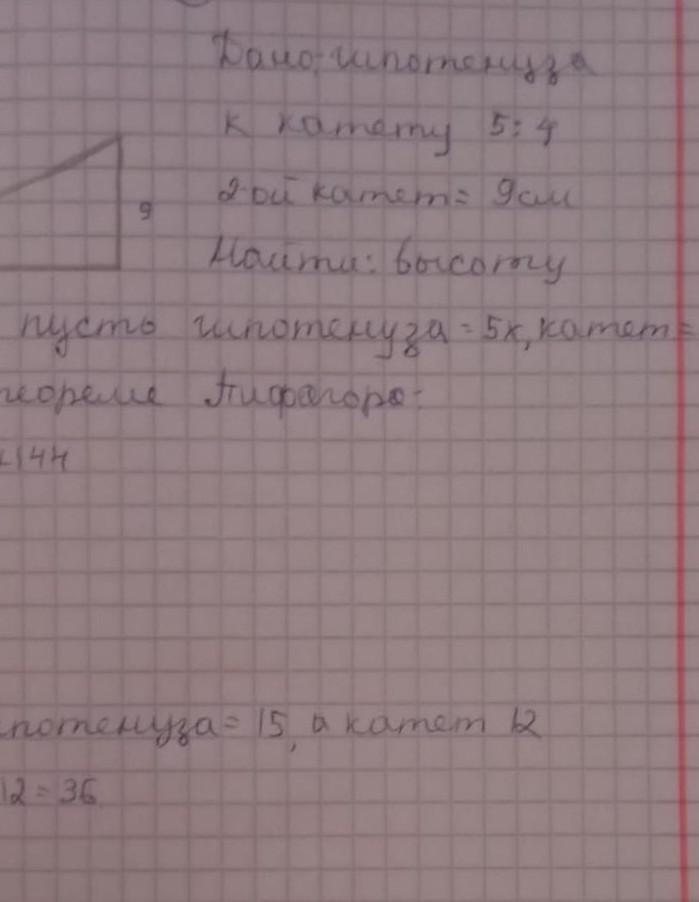 Дано: гипотенуза
к катету 5:4
9
2-ой катет = 9см
Найти: высоту
пусть гипотенуза = 5х, катет =
теореме Пифагора:
144
потенуза = 15, а катет 12
12 = 36